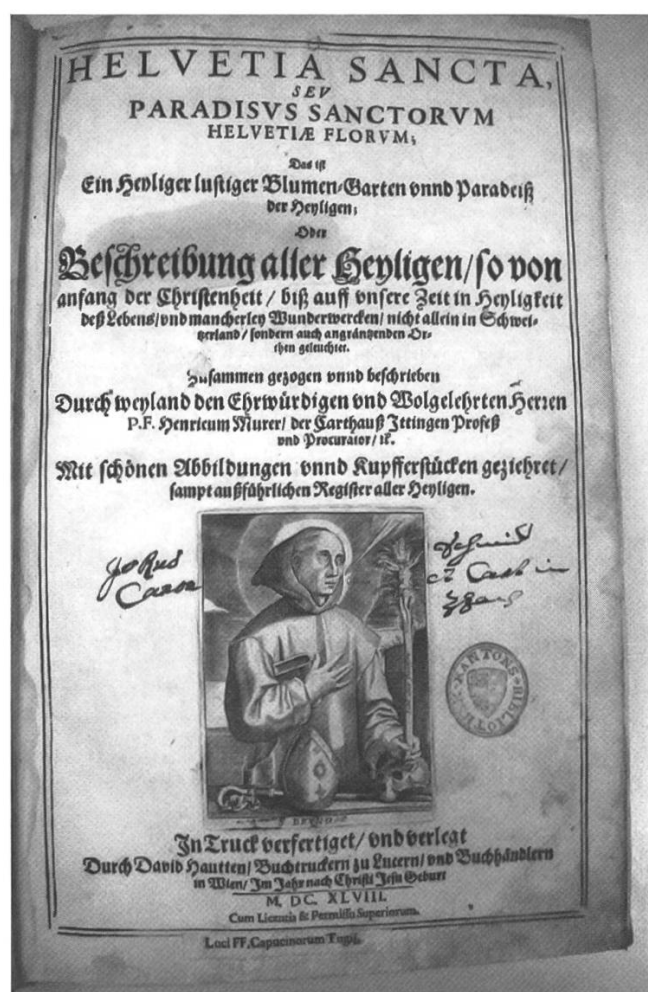 HELVETIA SANCTA,
SEV
PARADISVS SANCTORVM
HELVETIÆ FLORVM;
Das ist
Ein Heyliger lustiger Blumen-Garten vnnd Paradeiß
der Heyligen;
Oder
Beschreibung aller Heyligen/so von
anfang der Christenheit / biß auff vnsere Zeit in Heyligkeit
deß Lebens/vnd mancherley Wunderwercken/ nicht allein in Schwei-
tzerland/ sondern auch angräntzenden Or-
then geleuchtet.
Zusammen gezogen vnnd beschrieben
Durch weyland den Ehrwürdigen vnd Wolgelehrten Herren
P.F. Henricum Murer/ der Carthauß Ittingen Profeß
vnd Procurator/ ꝛc.
Mit schönen Abbildungen vnnd Kupfferstücken geziehret/
sampt außführlichen Register aller Heyligen.
KANTONS BIBLIOTH
In Truck verfertiget/ vnd verlegt
Durch David Hautten/ Buchtruckern zu Lucern/ vnd Buchhändlern
in Wien/ Im Jahr nach Christi Jesu Geburt
M. DC. XLVIII.
Cum Licentia & Permissu Superiorum.
Loci FF. Capucinorum Tugij.